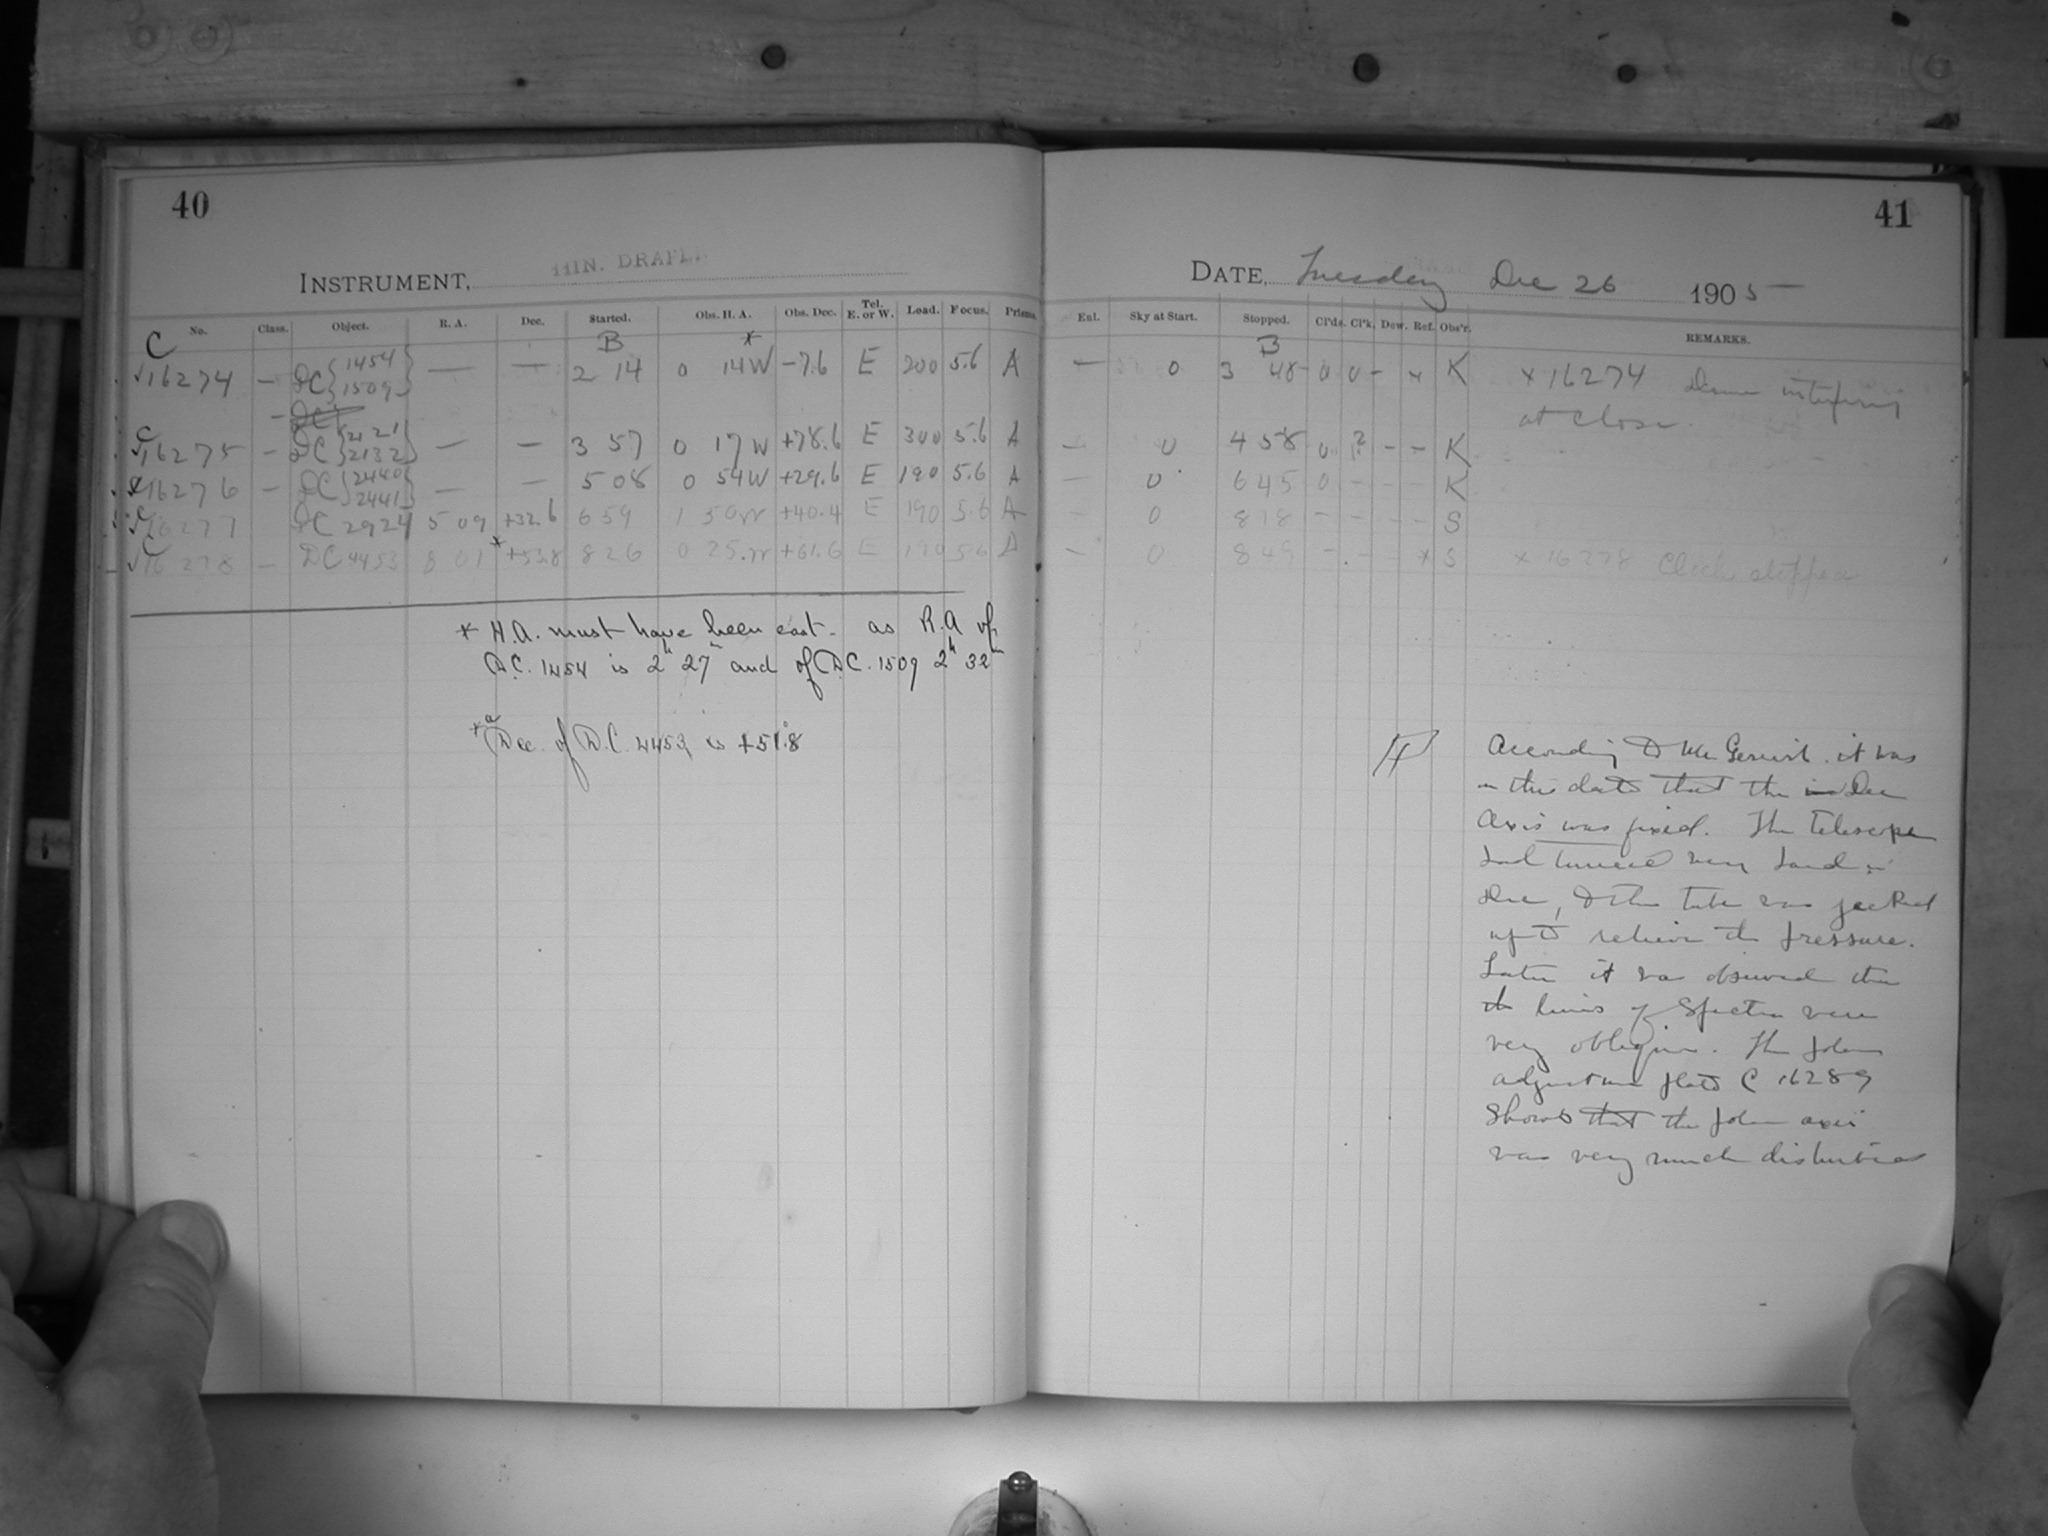 40
INSTRUMENT, 11IN. DRAPER
No. Class. Object. R. A. Dec. Started. Obs. H. A. Obs. Dec. Tel. E. or W. Load. Focus. Prisms.
C B *
√16274 – DC {1454 1509} — — 2 14 0 14W –7.6 E 200 5.6 A
– DC
C
√16275 – DC {2121 2132} — — 3 57 0 17W +78.6 E 300 5.6 A
16276 – DC {2440 2441} — — 5 08 0 54W +29.6 E 190 5.6 A
√16277 DC 2924 5 09 +32.6 6 59 1 50W +40.4 E 190 5.6 A
√16278 – DC 4453 8 01 * +53.8 8 26 0 25W +61.6 E 190 5.6 A
* H.A. must have been east. as R.A of
D.C. 1454 is 2h 27m and of D.C. 1509 2h 32m
*a Dec. of D.C. 4453 is +51°.8
41
DATE, Tuesday Dec 26 1905
Enl. Sky at Start. Stopped. Cl'ds. Cl'k. Dew. Ref. Obs'r. REMARKS.
B
— 0 3 48 0 0 – x K x 16274 Dome interfering
at close.
– 0 4 58 0 ? – – K
– 0 6 45 0 – – – K
– 0 8 18 – – – – S
– 0 8 49 – – – x S x 16278 Clock stopped
According to Mr Gerrish. it was
on this date that the Dec
Axis was fixed. The telescope
had turned very hard in
Dec, & the tube was jacked
up to relieve the pressure.
Later it was observed that
the lines of Spectra were
very oblique. The polar
adjustment plate C 16289
Shows that the polar axis
was very much disturbed